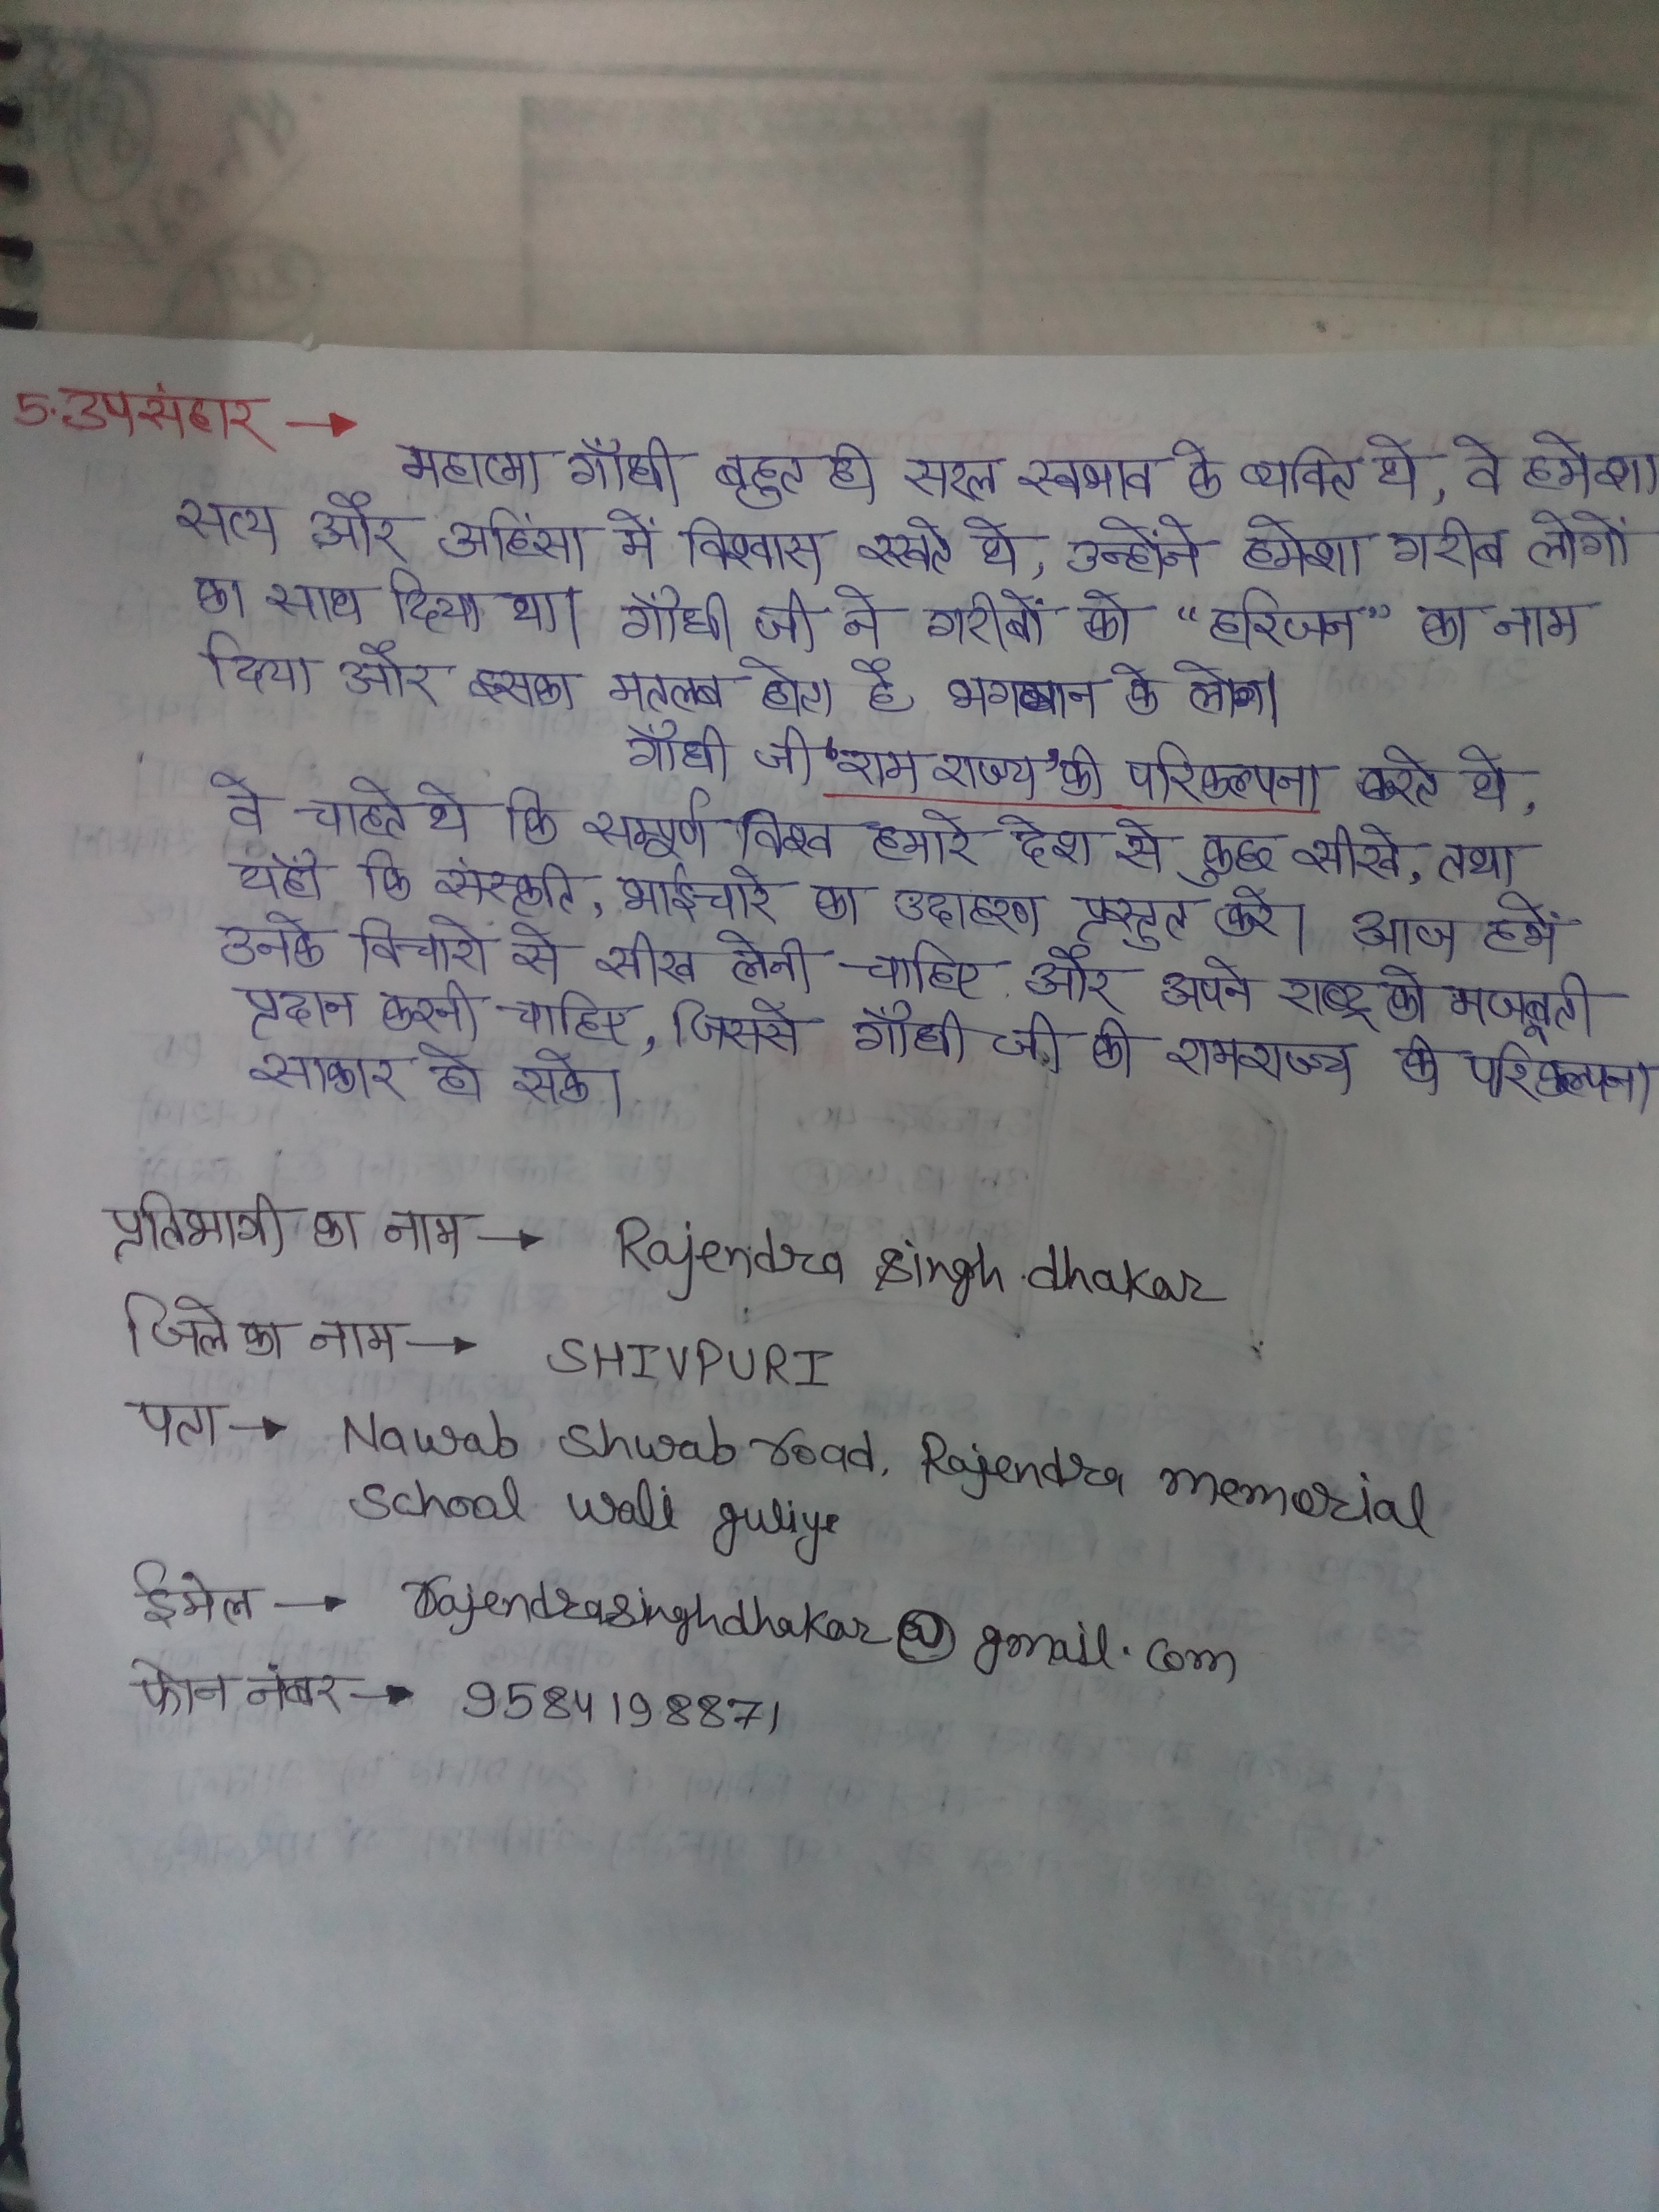 5. उपसंहार →
महात्मा गाँधी बहुत ही सरल स्वभाव के व्यक्ति थे, वे हमेशा
सत्य और अहिंसा में विश्वास रखते थे, उन्होंने हमेशा गरीब लोगों
का साथ दिया था। गाँधी जी ने गरीबों को "हरिजन" का नाम
दिया और इसका मतलब होता है भगवान के लोग।
गाँधी जी 'राम राज्य' की परिकल्पना करते थे,
वे चाहते थे कि सम्पूर्ण विश्व हमारे देश से कुछ सीखे, तथा
यहाँ कि संस्कृति, भाईचारे का उदाहरण प्रस्तुत करे। आज हमें
उनके विचारो से सीख लेनी चाहिए और अपने राष्ट्र को मजबूती
प्रदान करनी चाहिए, जिससे गाँधी जी की रामराज्य की परिकल्पना
साकार हो सके।
प्रतिभागी का नाम → Rajendra singh dhakar
जिले का नाम → SHIVPURI
पता → Nawab Shwab road, Rajendra memorial
School wali guliye
ईमेल → rajendrasinghdhakar@gmail.com
फोन नंबर → 9584198871